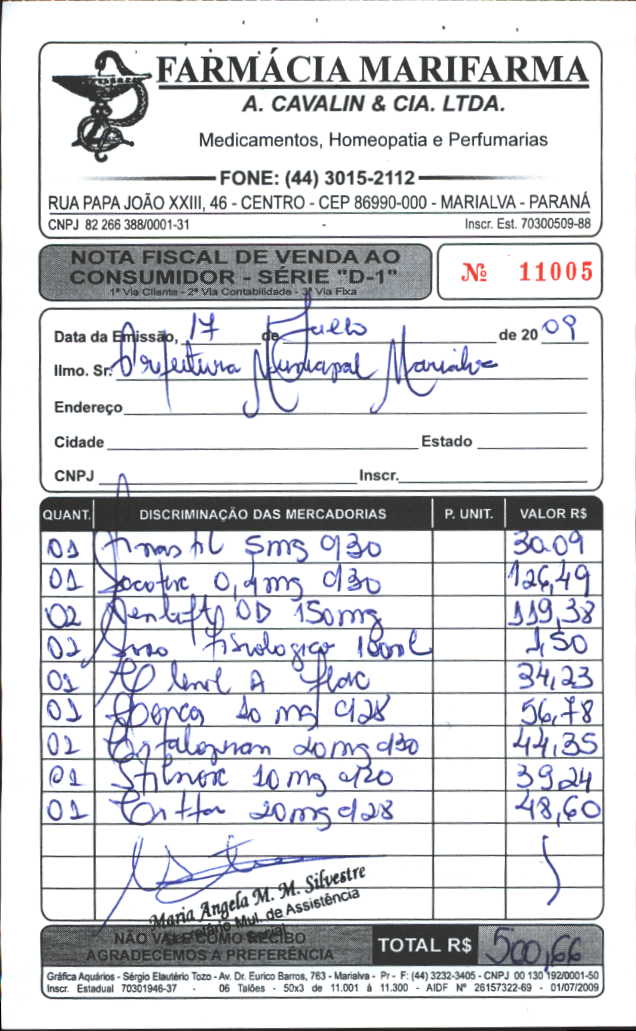 FARMÁCIA MARIFARMA
A. CAVALIN & CIA. LTDA.
Medicamentos, Homeopatia e Perfumarias
FONE: (44) 3015-2112
RUA PAPA JOÃO XXIII, 46 - CENTRO - CEP 86990-000 - MARIALVA - PARANÁ
CNPJ 82 266 388/0001-31 Inscr. Est. 70300509-88
NOTA FISCAL DE VENDA AO
CONSUMIDOR - SÉRIE "D-1"
1ª Via Cliente - 2ª Via Contabilidade - 3ª Via Fixa
Nº 11005
Data da Emissão, 17 de Julho de 20 09
Ilmo. Sr. Prefeitura Municipal Marialva
Endereço
Cidade Estado
CNPJ Inscr.
QUANT. DISCRIMINAÇÃO DAS MERCADORIAS P. UNIT. VALOR R$
01 5mg c/30 30.09
01 0,4mg c/30 126,49
02 OD 150mg 119,38
01 Soro fisiologico 100ml 1,50
01 34,23
01 10 mg c/28 56,78
02 20mg c/30 44,35
01 Stilnox 10 mg c/20 39,24
01 20mg c/28 48,60
Maria Angela M. M. Silvestre
Mul. de Assistência
Social
NÃO VALE COMO RECIBO
AGRADECEMOS A PREFERÊNCIA
TOTAL R$ 500,66
Gráfica Aquários - Sérgio Elautério Tozo - Av. Dr. Eurico Barros, 763 - Marialva - Pr - F: (44) 3232-3405 - CNPJ 00 130 192/0001-50
Inscr. Estadual 70301946-37 - 06 Talões - 50x3 de 11.001 á 11.300 - AIDF Nº 26157322-69 - 01/07/2009